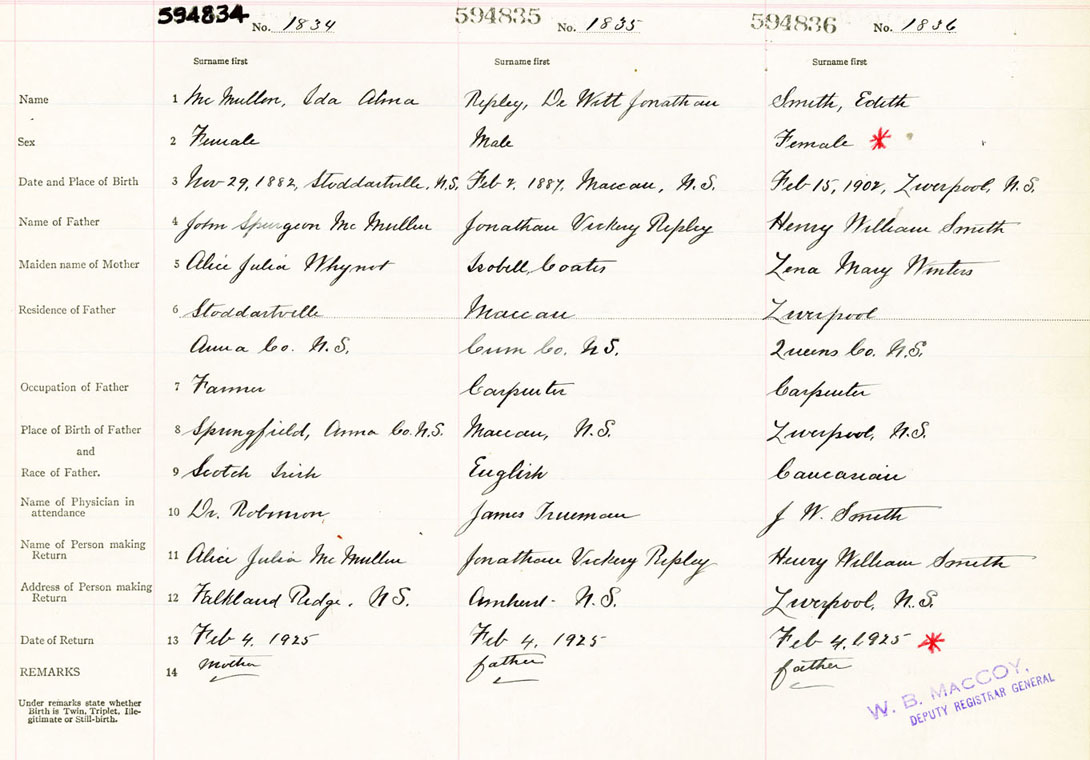 594834 No. 1834 594835 No. 1835 594836 No. 1836
Surname first Surname first Surname first
Name 1 Mc Mullen, Ida Alma Ripley, De Witt Jonathan Smith, Edith
Sex 2 Female Male Female *
Date and Place of Birth 3 Nov 29, 1882, Stoddartville, N.S. Feb 2, 1887, Maccan, N.S. Feb 15, 1902, Liverpool, N.S.
Name of Father 4 John Spurgeon Mc Mullen Jonathan Vickery Ripley Henry William Smith
Maiden name of Mother 5 Alice Julia Whynot Isobell Coates Lena Mary Winters
Residence of Father 6 Stoddartville Maccan Liverpool
Anna Co. N.S. Cum Co. N.S. Queens Co. N.S.
Occupation of Father 7 Farmer Carpenter Carpenter
Place of Birth of Father 8 Springfield, Anna Co. N.S. Maccan, N.S. Liverpool, N.S.
and
Race of Father. 9 Scotch Irish English Caucasian
Name of Physician in
attendance 10 Dr. Robinson James Trueman J W. Smith
Name of Person making
Return 11 Alice Julia Mc Mullen Jonathan Vickery Ripley Henry William Smith
Address of Person making
Return 12 Falkland Ridge, N.S. Amherst N.S. Liverpool, N.S.
Date of Return 13 Feb 4, 1925 Feb 4, 1925 Feb 4, 1925 *
REMARKS 14 mother father father
Under remarks state whether
Birth is Twin, Triplet, Ille-
gitimate or Still-birth.
W. B. MACCOY,
DEPUTY REGISTRAR GENERAL